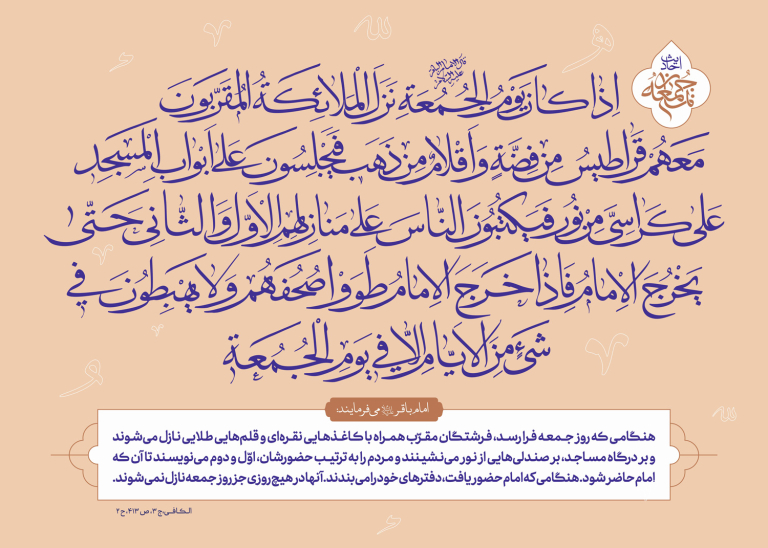 احادیث
نماز جمعه
قال الامام الباقر علیه السلام
اِذا کانَ یَوْمُ الْجُمُعَةِ نَزَلَ الْمَلائِکَةُ الْمُقَرَّبُونَ
مَعَهُمْ قَراطیسُ مِنْ فِضَّةٍ وَ اَقْلامٌ مِنْ ذَهَبٍ فَیَجْلِسُونَ عَلی اَبْوابِ الْمَسْجِدِ
عَلی کَراسِیَّ مِنْ نُورٍ فَیَکْتُبُونَ النّاسَ عَلی مَنازِلِهِمُ الْاَوَّلَ وَ الثّانِیَ حَتّی
یَخْرُجَ الْاِمامُ فَاِذا خَرَجَ الْاِمامُ طَوَوْا صُحُفَهُمْ وَ لا یَهْبِطُونَ فی
شَیْءٍ مِنَ الْاَیّامِ اِلّا فی یَوْمِ الْجُمُعَةِ
امام باقر می‌فرمایند:
هنگامی که روز جمعه فرا رسد، فرشتگان مقرّب همراه با کاغذهایی نقره‌ای و قلم‌هایی طلایی نازل می‌شوند
و بر درگاه مساجد، بر صندلی‌هایی از نور می‌نشینند و مردم را به ترتیب حضورشان، اوّل و دوم می‌نویسند تا آن که
امام حاضر شود. هنگامی که امام حضور یافت، دفترهای خود را می‌بندند. آنها در هیچ روزی جز روز جمعه نازل نمی‌شوند.
الکافی، ج ۳، ص ۴۱۳، ح ۲